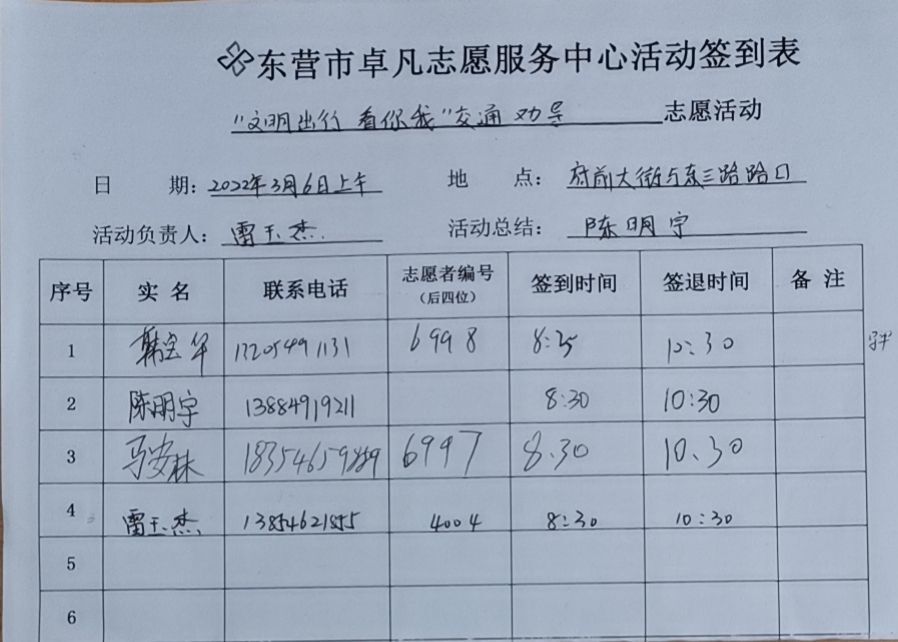 东营市卓凡志愿服务中心活动签到表
"文明出行 看你我"交通劝导 志愿活动
日 期：2022年3月6日上午 地 点：府前大街与东三路路口
活动负责人：雷玉杰 活动总结：陈明宇
序号 实名 联系电话 志愿者编号（后四位） 签到时间 签退时间 备注
1 韩宝华 6998 8:25 10:30
2 陈明宇 13884919211 8:30 10:30
3 马安林 6997 8.30 10.30
4 雷玉杰 13854621855 4004 8:30 10:30
5
6